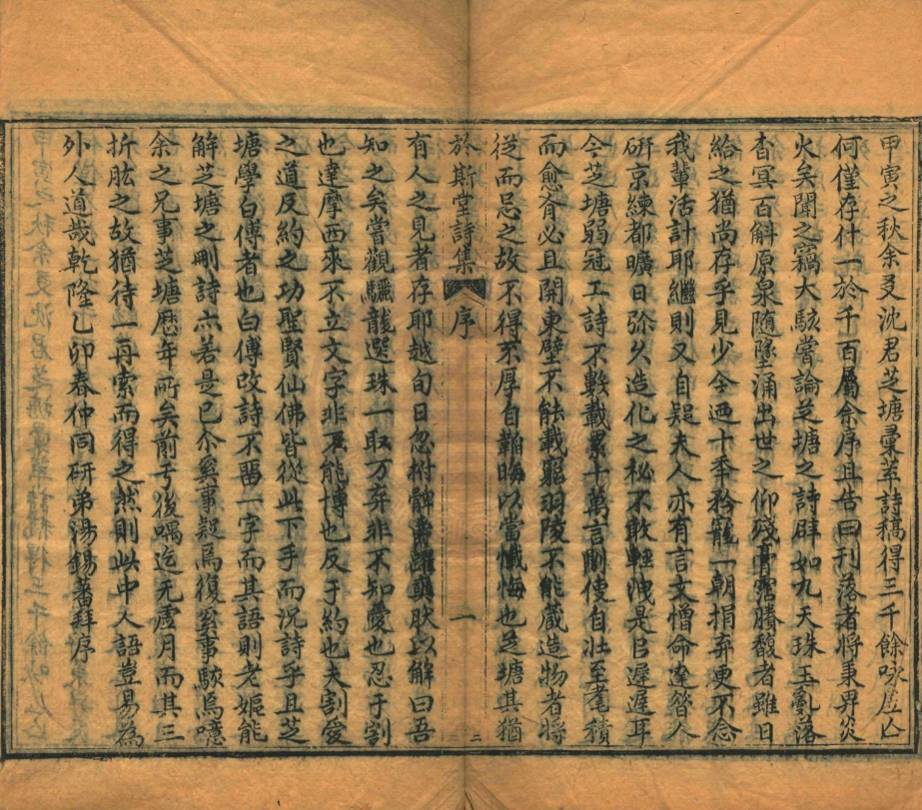 甲寅之秋余叜沈君芝塘彙萃詩稿得三千餘咏虗凸
何僅存什一於千百屬余序且告曰刊落者将秉畀炎
火矣聞之竊大駭嘗論芝塘之詩辟如九天珠玉亂落
杳冥百斛原泉随墜涌出世之仰殘膏霑賸馥者雖日
給之猶尚存乎見少今迺十秊矜寵一朝捐弃更不念
我輩活計耶繼則又自疑夫人亦有言文憎命達簮人
研京練都曠日弥久造化之秘不敢輕洩是㠯遲遲耳
今芝塘弱冠工詩不數載累十萬言則使自壯至耄積
而愈斉必且開東壁不能載羽陵不能蔵造物者将
從而忌之故不得不厚自韜晦以當懺悔也芝塘其猶
於斯堂詩集 序 一
有人之見者存耶越旬日忽拊髀雀躍輿肰以解曰吾
知之矣嘗觀驪龍選珠一取万弃非不知愛也忍于割
也達摩西来不立文字非不能博也反于約也夫割愛
之道反約之功聖賢仙佛皆從此下手而況詩乎且芝
塘學白傅者也白傅改詩不畱一字而其語則老嫗能
解芝塘之刪詩亦若是已介奚事疑焉復奚事駭焉噫
余之兄事芝塘歴年所矣前亏後喁迄无虗月而其三
折肱之故猶待一再索而得之然則此中人語豈易為
外人道哉乾隆乙卯春仲同研弟湯錫蕃拜序